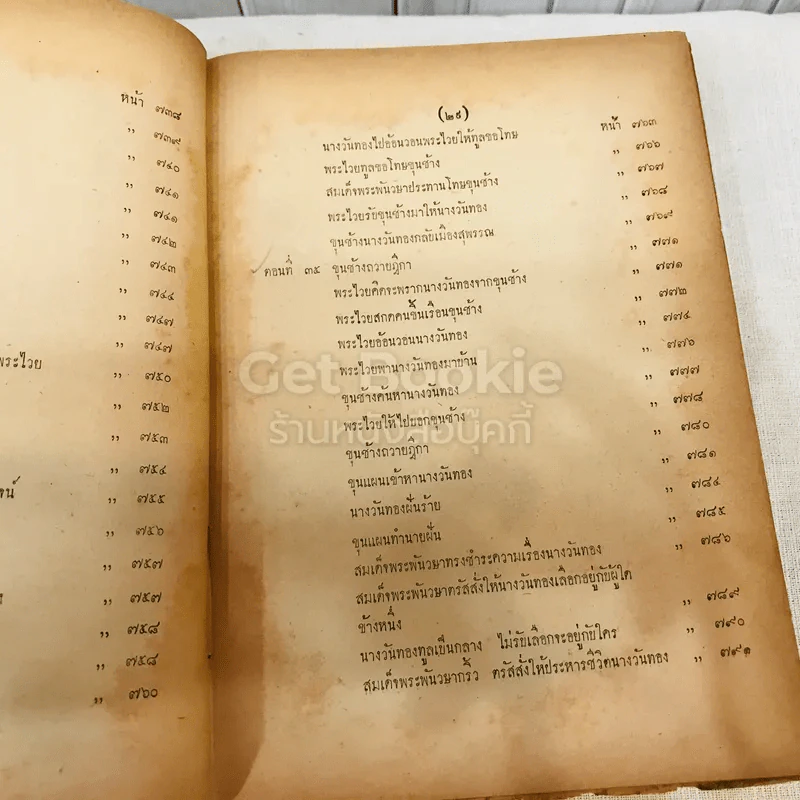 หน้า ๗๓๘
" ๗๓๙
" ๗๔๐
" ๗๔๑
" ๗๔๑
" ๗๔๒
" ๗๔๓
" ๗๔๔
" ๗๔๗
" ๗๔๗
พระไวย " ๗๕๐
" ๗๕๒
" ๗๕๓
" ๗๕๔
" ๗๕๕
" ๗๕๖
" ๗๕๗
" ๗๕๗
" ๗๕๘
" ๗๕๘
" ๗๖๐
(๒๙)
นางวันทองไปอ้อนวอนพระไวยให้ทูลขอโทษ หน้า ๗๖๓
พระไวยทูลขอโทษขุนช้าง " ๗๖๖
สมเด็จพระพันวษาประทานโทษขุนช้าง " ๗๖๗
พระไวยรับขุนช้างมาให้นางวันทอง " ๗๖๘
ขุนช้างนางวันทองกลับเมืองสุพรรณ " ๗๖๙
ตอนที่ ๓๕ ขุนช้างถวายฎีกา " ๗๗๑
พระไวยคิดจะพรากนางวันทองจากขุนช้าง " ๗๗๑
พระไวยสกดคนขึ้นเรือนขุนช้าง " ๗๗๒
พระไวยอ้อนวอนนางวันทอง " ๗๗๔
พระไวยพานางวันทองมาบ้าน " ๗๗๖
ขุนช้างค้นหานางวันทอง " ๗๗๗
พระไวยให้ไปบอกขุนช้าง " ๗๗๘
ขุนช้างถวายฎีกา " ๗๘๐
ขุนแผนเข้าหานางวันทอง " ๗๘๑
นางวันทองฝันร้าย " ๗๘๔
ขุนแผนทำนายฝัน " ๗๘๕
สมเด็จพระพันวษาทรงชำระความเรื่องนางวันทอง " ๗๘๖
สมเด็จพระพันวษาตรัสสั่งให้นางวันทองเลือกอยู่กับผู้ใด
ข้างหนึ่ง " ๗๘๙
นางวันทองทูลเป็นกลาง ไม่รับเลือกจะอยู่กับใคร " ๗๙๐
สมเด็จพระพันวษากริ้ว ตรัสสั่งให้ประหารชีวิตนางวันทอง " ๗๙๑
Get Bookie
ร้านหนังสือบุ๊คกี้